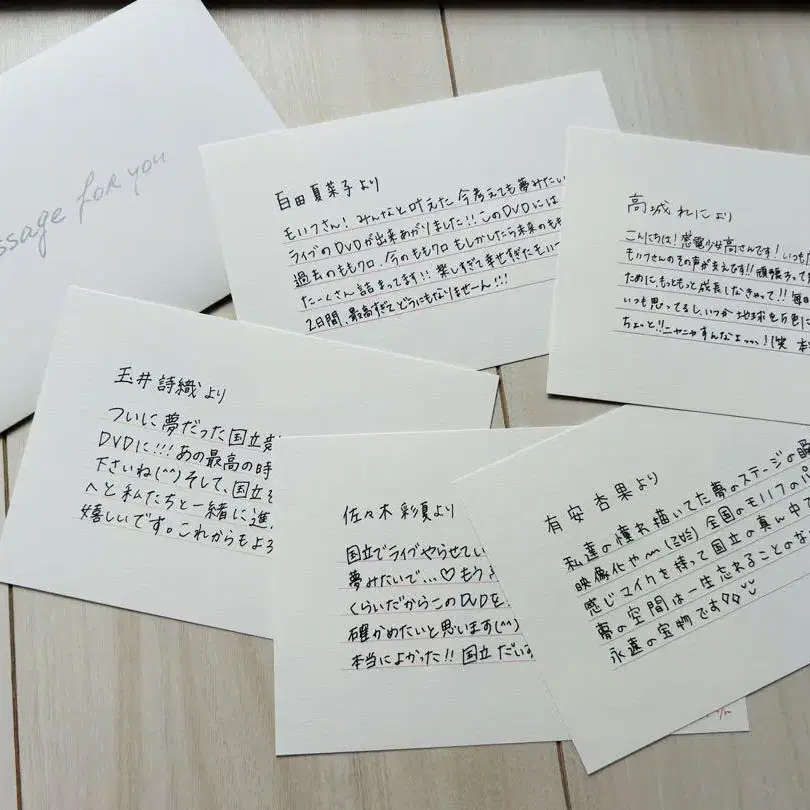 ssage for you
百田夏菜子より
モノノフさん！みんなと叶えた今考えても夢みたい
ライブのDVDが出来あがりました!!このDVDには
過去のももクロ、今のももクロ もしかしたら未来のもも
たーくさん詰まってます!!楽しすぎて幸せすぎた
2日間、最高すぎてどうにもなりませーん!!!
高城れにより
こんにちは！感電少女高さんです！いつも
モノノフさんのその声が支えです!!頑張って
ために、もっともっと成長しなきゃって!!毎日
いつも思ってるし、いつか地球を5色に
ちょっと!!ニヤニヤすんなよっっっ！(笑 本
玉井詩織より
ついに夢だった国立競
DVDに!!!あの最高の時
下さいね(^^)そして、国立を
へと私たちと一緒に進
嬉しいです。これからもよろ
佐々木彩夏より
国立でライブやらせてい
夢みたいで…♡もう
くらいだからこのDVDを
確かめたいと思います(^^)
本当によかった!!国立だい
有安杏果より
私達の憧れ描いてた夢のステージの瞬
映像化や 全国のモノノフのパ
感じマイクを持って国立の真ん中で
夢の空間は一生忘れることのな
永遠の宝物です